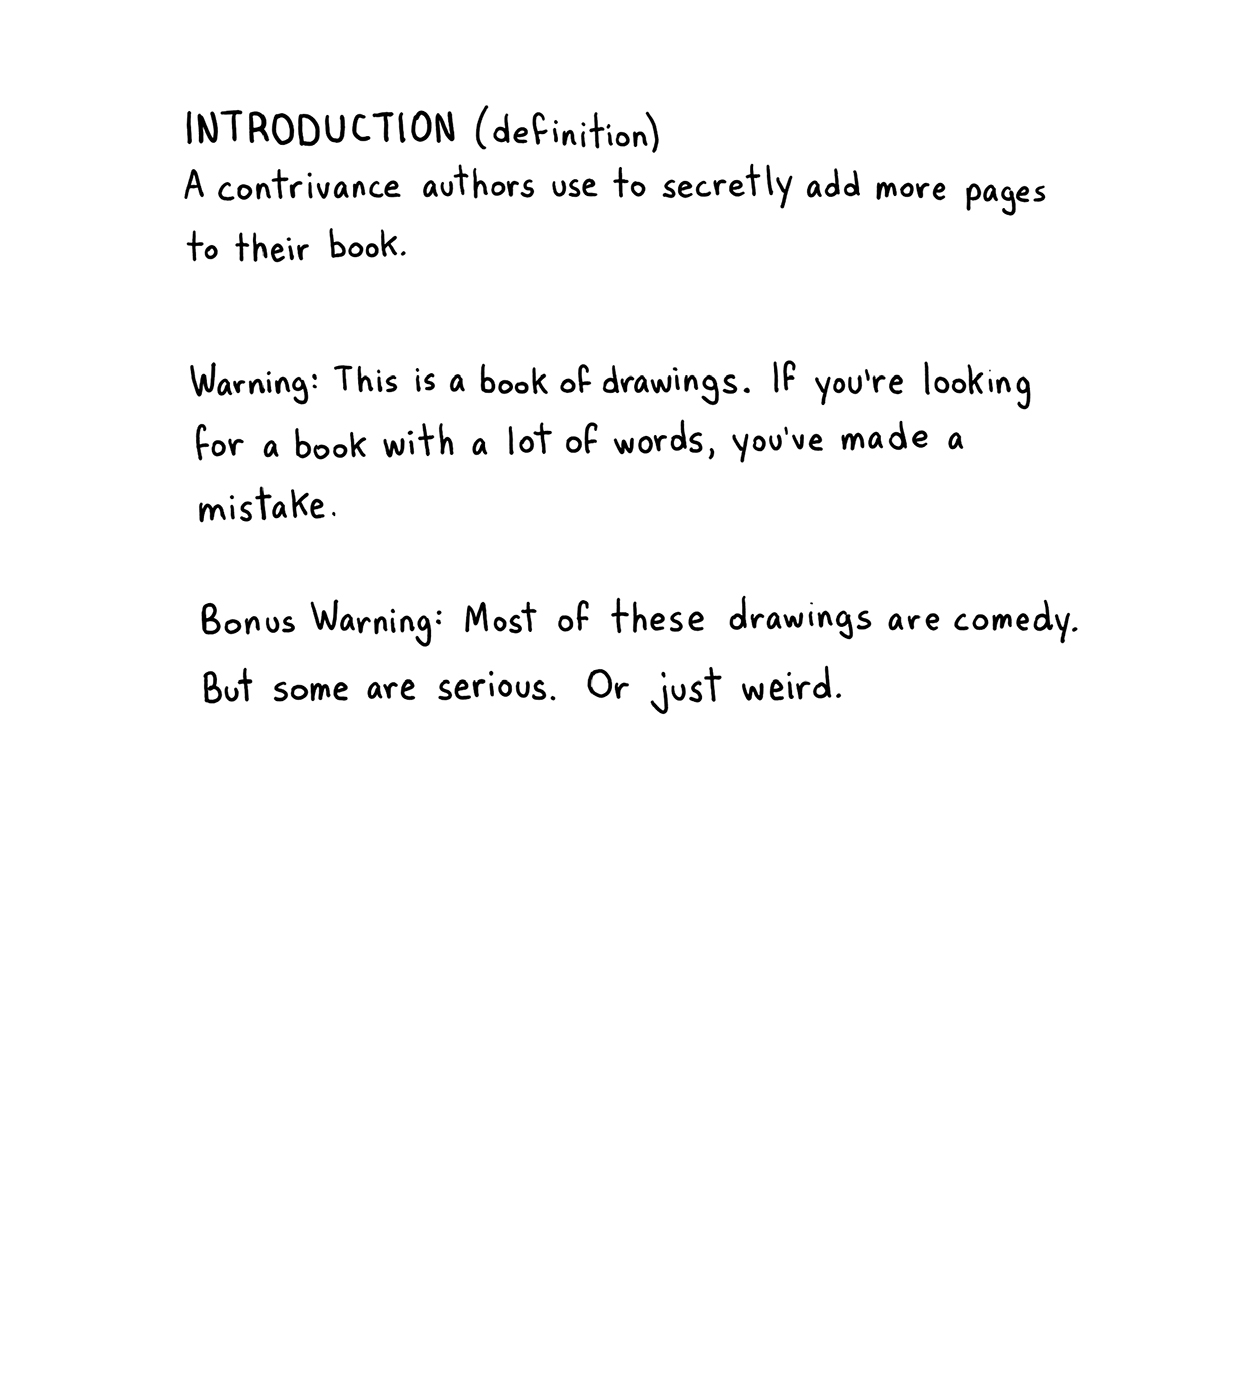 INTRODUCTION (definition)
A contrivance authors use to secretly add more pages
to their book.
Warning: This is a book of drawings. If you're looking
for a book with a lot of words, you've made a
mistake.
Bonus Warning: Most of these drawings are comedy.
But some are serious. Or just weird.